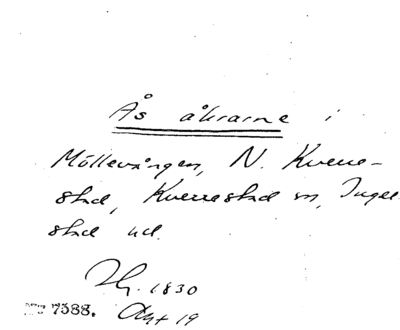 Ås åkrarne i
Möllevången, N. Kverre-
stad, Kverrestad sn, Ingel-
stad hd.
1830
7388. Akt 19